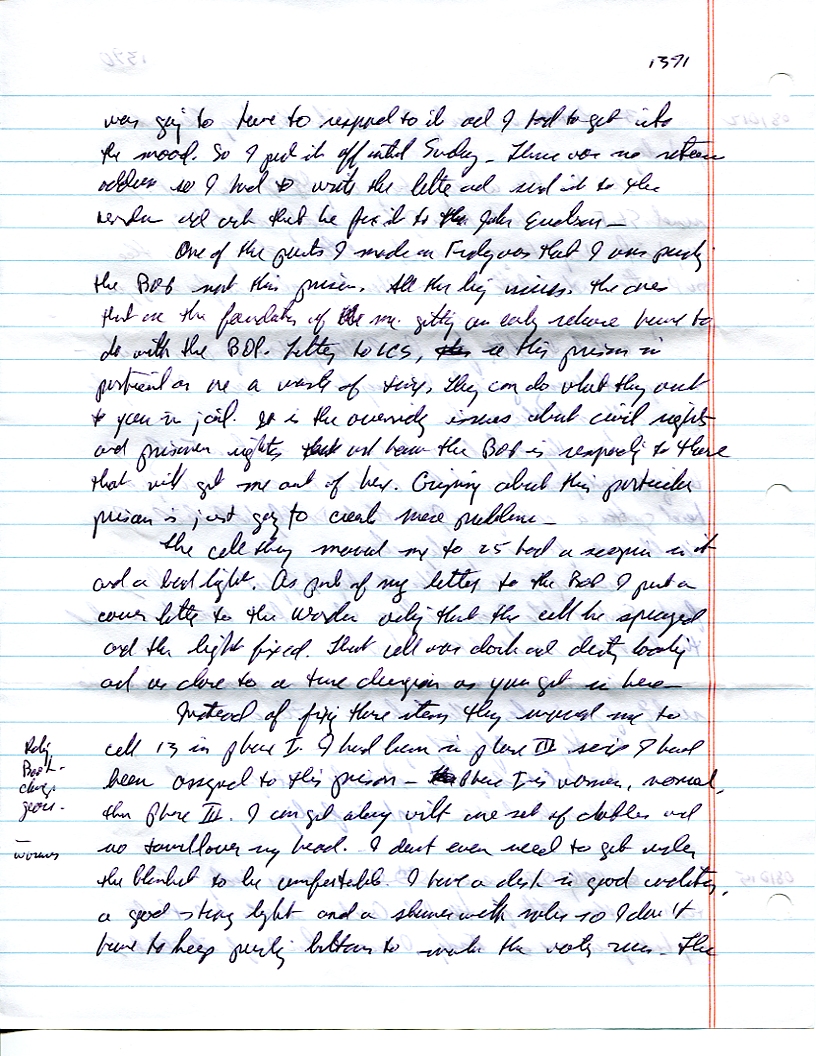 1391
was going to have to respond to it and I had to get into
the mood. So I put it off until Sunday. There was no return
address so I had to write the letter and send it to the
warden and ask that he fax it to the John
One of the points I made on Friday was that I was
the BOP not this prison. All the big issues. the ones
that are the foundation of me getting an early release have to
do with the BOP. in this prison in
particular are a waste of time. They can do what they want
to you in jail. It is the overriding issues about civil rights
and prisoner rights and how the BOP is responding to these
that will get me out of here. Griping about this particular
prison is just going to create more problems
The cell they moved me to 25 had a in it
and a bad light. As part of my letter to the BOP I put a
cover letter to the Warden asking that the cell be sprayed
and the light fixed. That cell was dark and dirty looking
and as close to a true dungeon as you get in here
Instead of fixing those items they moved me to
cell 13 in phase I. I had been in phase III since I had
been assigned to this prison – Phase I is warmer, normal,
than phase III. I can get along with one set of clothes and
no towel over my head. I dont even need to get under
the blanket to be comfortable. I have a desk in good condition,
a good strong light and a shower with so I don't
have to keep pushing buttons to make the water run. The
Book -
warms